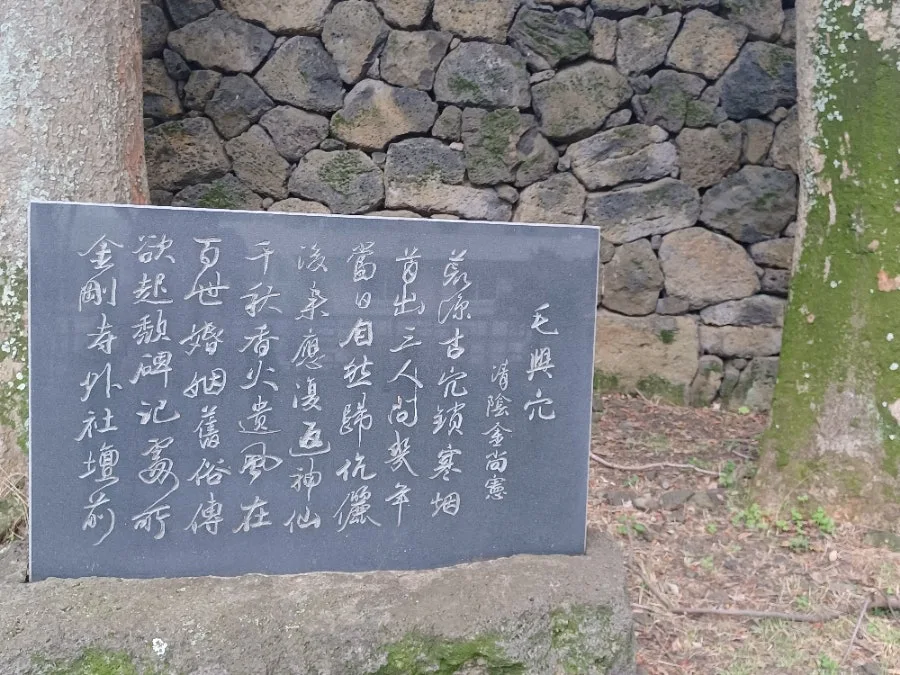 毛興穴
清陰金尚憲
荒凉古穴鎖寒烟
首出三人问幾年
當日自然歸伉儷
後來應復返神仙
千秋香火遺風在
百世婚姻舊俗傳
欲起頹碑記處所
金剛寺外社壇前